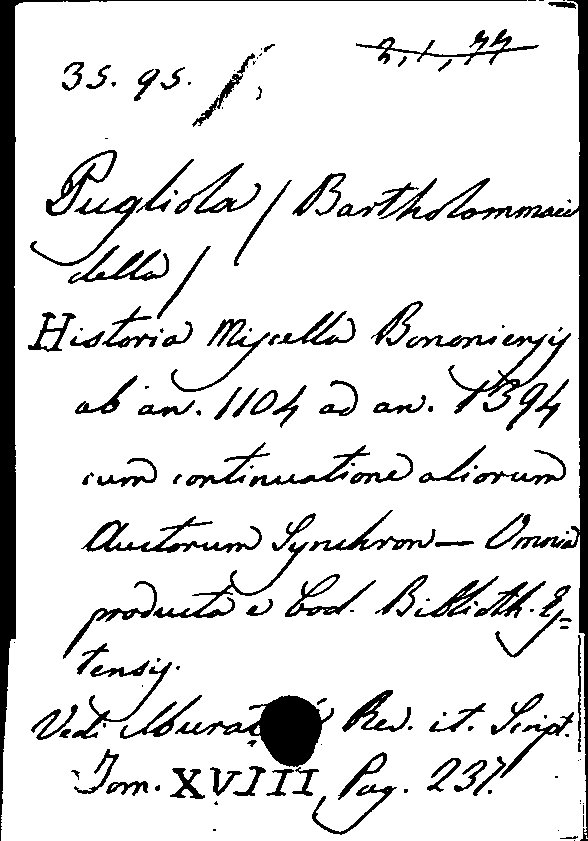 35. 95.
2,1,77
Pugliola / Bartholommaeii
della /
Historia Miscella Bononiensis
ab an. 1104 ad an. 1394
cum continuatione aliorum
Auctorum Synchron — Omnia
producta e Cod. Biblioth. Es=
tensis.
Vedi Murat Rer. it. Script.
Tom. XVIII Pag. 237.